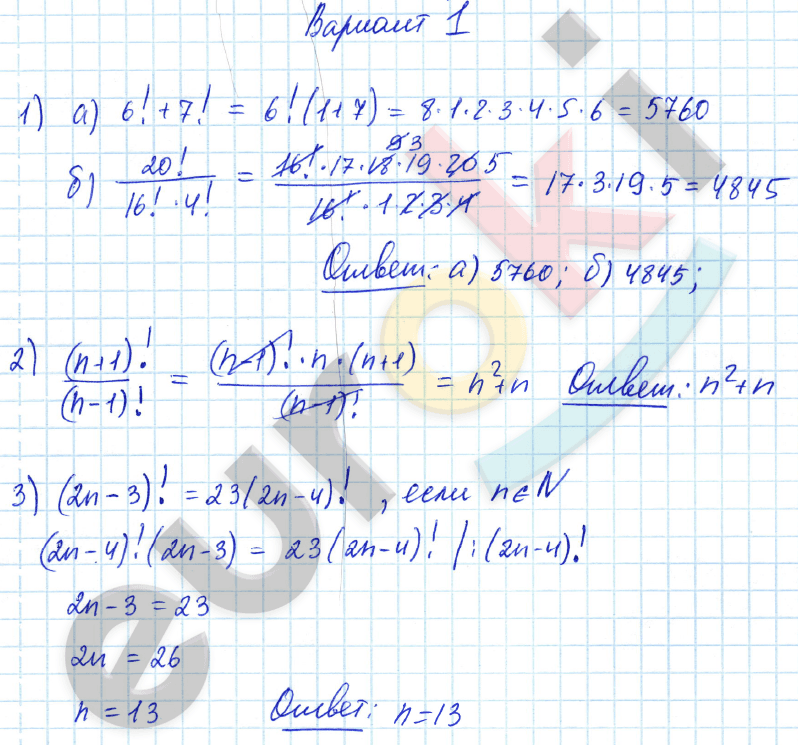 Вариант 1
1) а) 6! + 7! = 6!(1+7) = 8·1·2·3·4·5·6 = 5760
б) 20! / 16!·4! = 16!·17·18·19·20 / 16!·1·2·3·4 = 17·3·19·5 = 4845
9 3 5
Ответ: а) 5760; б) 4845;
2) (n+1)! / (n-1)! = (n-1)!·n·(n+1) / (n-1)! = n²+n Ответ: n²+n
3) (2n-3)! = 23(2n-4)!, если n∈N
(2n-4)!(2n-3) = 23(2n-4)! |:(2n-4)!
2n-3 = 23
2n = 26
n = 13 Ответ: n=13
euroki